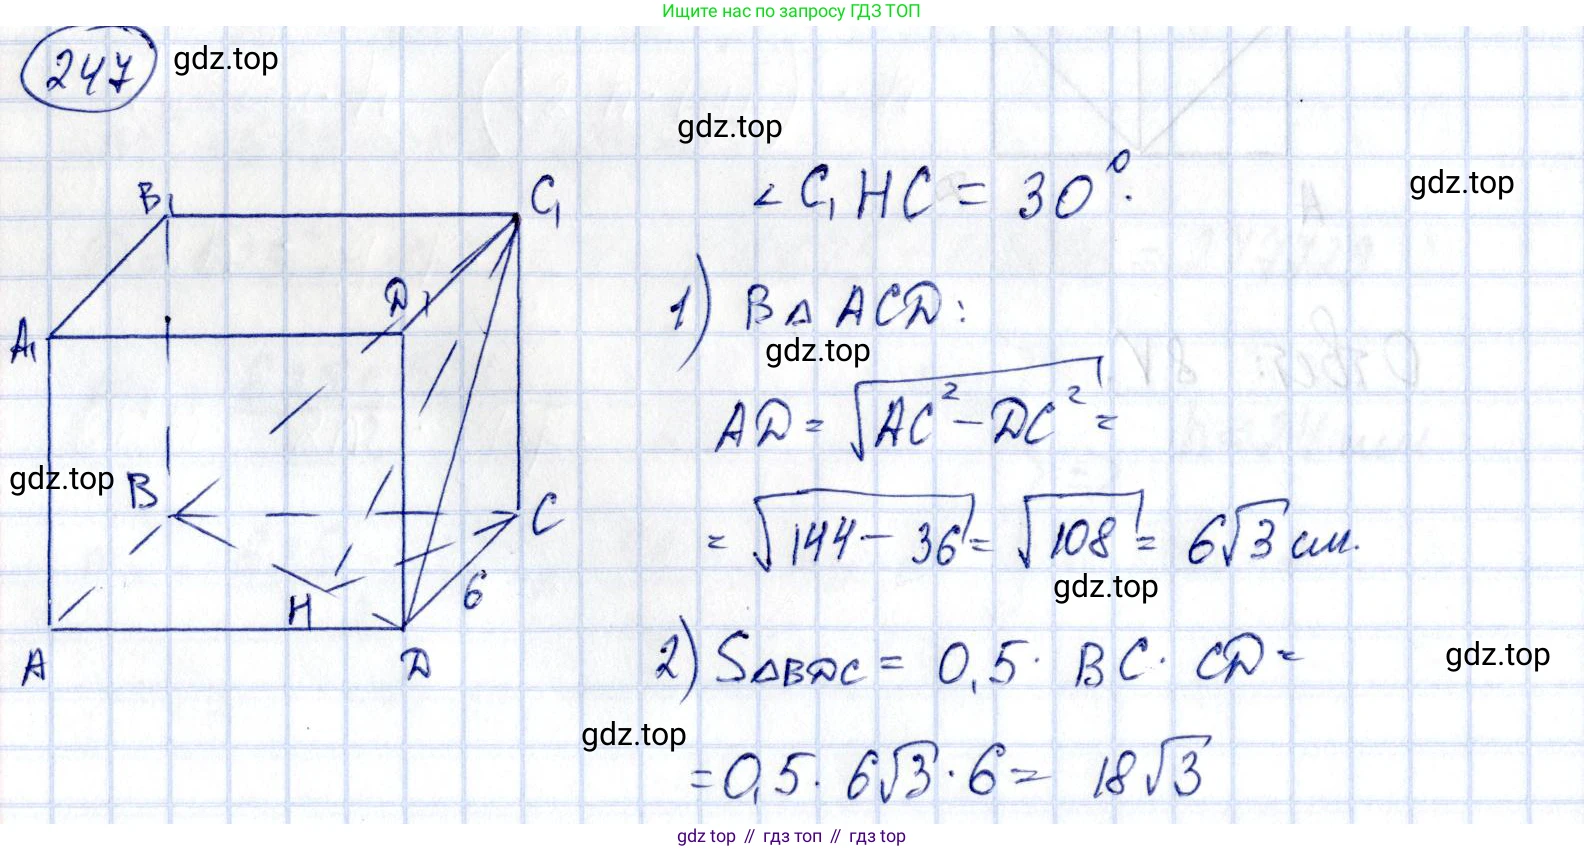 Ищите нас по запросу ГДЗ ТОП
247
gdz.top
gdz.top
gdz.top
B₁
C₁
∠ C₁HC = 30°.
D₁
A₁
1) В △ ACD:
gdz.top
AD = √AC² - DC² =
gdz.top
B
C
= √144 - 36 = √108 = 6√3 см.
gdz.top
6
H
A
D
2) S△BDC = 0,5 · BC · CD =
gdz.top
gdz.top
= 0,5 · 6√3 · 6 = 18√3
gdz top // гдз топ // гдз top